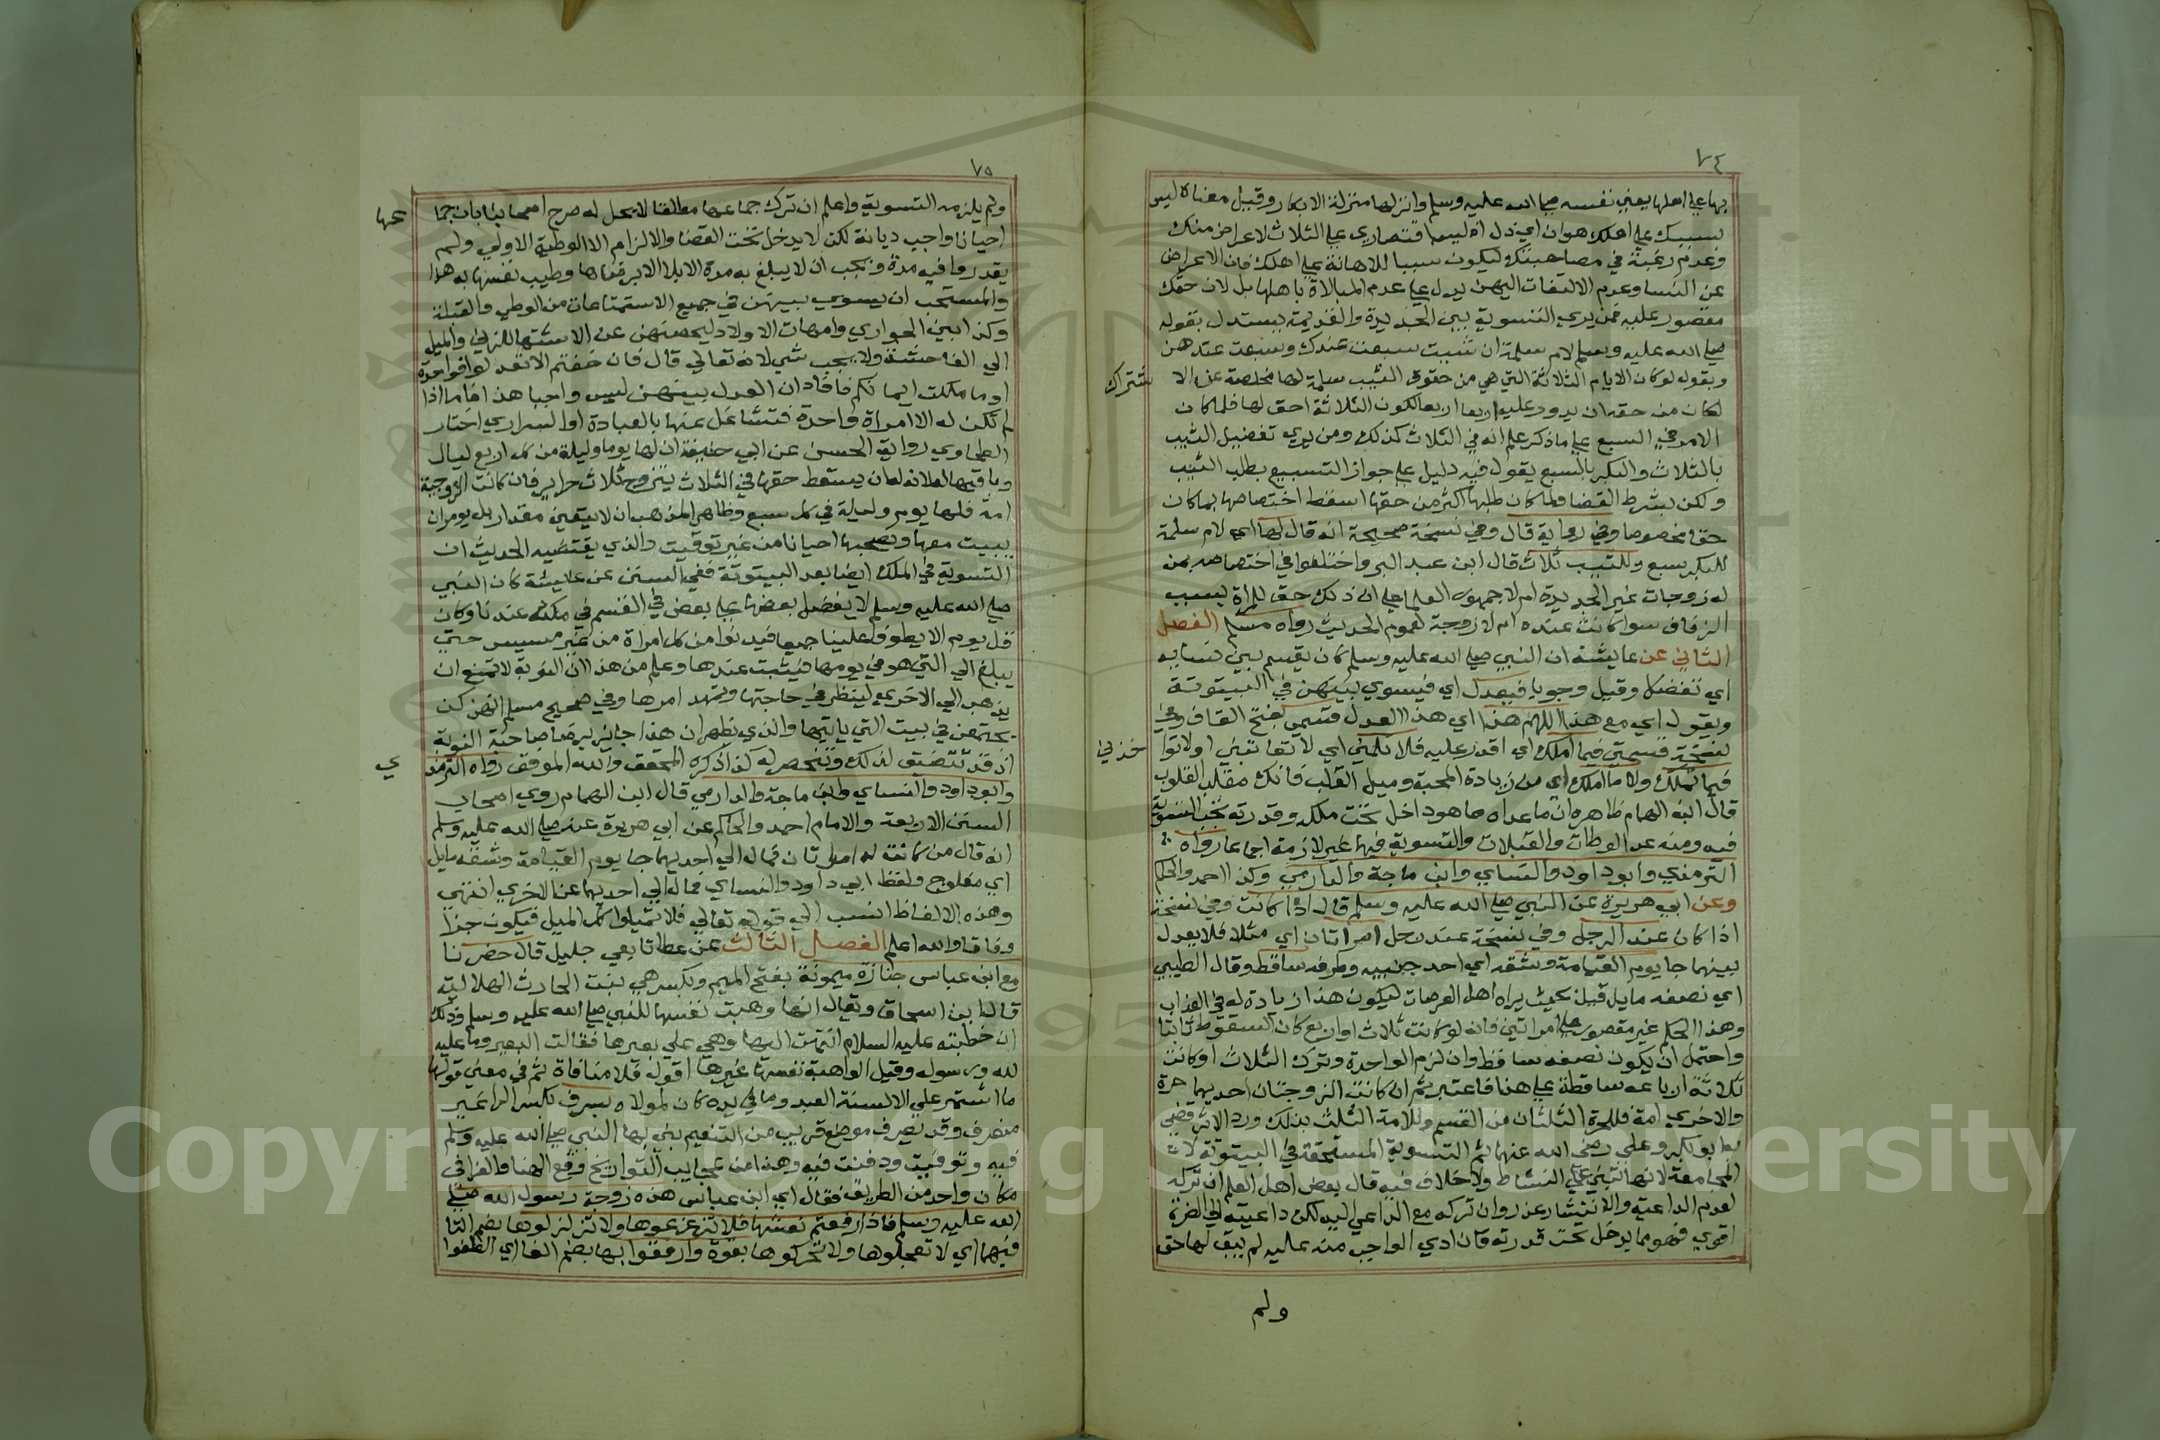 ٧٤
بها على اهلها يعني نفسه صلى الله عليه وسلم وانزلها منزلة الابكار وقيل معناه ليس
بسببك على اهلك هوان اي ذل اذ ليس اقتصاري على الثلاث لاعراض منك
وعدم رغبة في مصاحبتك ليكون سببا للاهانة على اهلك فان الاعراض
عن النسا وعدم الالتفات اليهن يدل على عدم المبالاة باهلها بل لان حقك
مقصور عليه فمن يرى التسوية بين الجديدة والقديمة يستدل بقوله
صلى الله عليه وسلم لام سلمة ان شيت سبعت عندك وسبعت عندهن
وبقوله لو كان الايام الثلاثة التي هي من حقوق الثيب سلمة لها مخلصة عن الا شتراك
لكان من حقه ان يدور عليهن اربعا اربعا لكون الثلاثة احق لها فلما كان
الامر في السبع على ما ذكر علم انه في الثلاث كذلك ومن يرى تفضيل الثيب
بالثلاث والبكر بالسبع يقول فيه دليل على جواز التسبيع بطلب الثيب
ولكن بشرط القضا ولما كان طلبها اكثر من حقها اسقط اختصاصها بما كان
حقا مخصوصا وفي رواية قال وفي نسخة صحيحة انه قال لها اي لام سلمة
للبكر سبع وللثيب ثلاث قال ابن عبد البر واختلفوا في اختصاصه بمن
له زوجات غير الجديدة ام لا جمهور العلما على ان ذلك حق للمراة بسبب
الزفاف سوا كانت عنده ام لا زوجة لعموم الحديث رواه مسلم الفصل
الثاني عن عايشة ان النبي صلى الله عليه وسلم كان يقسم بين نسايه
اي تفضلا وقيل وجوبا فيعدل اي فيسوي بينهن في البيتوتة
ويقول اي مع هذا اللهم هذا اي هذا العدل قسمي بفتح القاف وفي
نسخة قسمتي فيما املك اي اقدر عليه فلا تلمني اي لا تعاتبني او لا توا خذني
فيما تملك ولا املك اي من زيادة المحبة وميل القلب فانك مقلب القلوب
قال ابن الهمام ظاهره ان ما عداه مما هو داخل تحت ملكه وقدرته تجب التسوية
فيه ومنه عدد الوطات والقبلات والتسوية فيها غير لازمة اجماعا رواه
الترمذي وابو داود والنساي وابن ماجة والدارمي وكذا احمد والحاكم
وعن ابي هريرة عن النبي صلى الله عليه وسلم قال اذا كانت وفي نسخة
اذا كان عند الرجل وفي نسخة عند رجل امراتان اي مثلا فلا يعدل
بينهما جا يوم القيامة وشقه اي احد جنبيه وطرفه ساقط وقال الطيبي
اي نصفه مايل قيل بحيث يراه اهل العرصات ليكون هذا زيادة له في العذاب
وهذا الحكم غير مقصور على امراتين فانه لو كانت ثلاث او اربع كان السقوط ثابتا
واحتمل ان يكون نصفه ساقط وان لزم الواحدة وترك الثلاث او كانت
ثلاثة ارباعه ساقطة على هذا فاعتبر ثم ان كانت الزوجتان احديهما حرة
والاخرى امة فللحرة الثلثان من القسم وللامة الثلث بذلك ورد الاثر قضى
به ابو بكر وعلي رضي الله عنهما ثم التسوية المستحقة في البيتوتة لا في
المجامعة لانها تبتني على النشاط ولا خلاف فيه قال بعض اهل العلم ان تركه
لعدم الداعية والانتشار عذر وان تركه مع الداعي اليه لكن داعيته الى الضرة
اقوى فهو مما يدخل تحت قدرته فان ادى الواجب منه عليه لم يبق لها حق
ولم
٧٥
ولم يلزمه التسوية واعلم ان ترك جماعها مطلقا لا يحل له صرح اصحابنا بان جما عها
احيانا واجب ديانة لكن لا يدخل تحت القضا والالزام الا الوطية الاولى ولم
يقدروا فيه مدة ويجب ان لا يبلغ به مدة الايلا الا برضاها وطيب نفسها به هذا
والمستحب ان يسوي بينهن في جميع الاستمتاعات من الوطي والقبلة
وكذا بين الجواري وامهات الاولاد ليحصنهن عن الاشتها للزنى والميل
الى الفاحشة ولا يجب شي لانه تعالى قال فان خفتم الا تعدلوا فواحدة
او ما ملكت ايمانكم فافاد ان العدل بينهن ليس واجبا هذا فاما اذا
لم تكن له الا امراة واحدة فتشاغل عنها بالعبادة او السراري اختار
الطحاوي رواية الحسن عن ابي حنيفة ان لها يوما وليلة من كل اربع ليال
وباقيها له لان له ان يسقط حقها في الثلاث بتزوج ثلاث حراير فان كانت الزوجة
امة فلها يوم وليلة في كل سبع وظاهر المذهب ان لا يتعين مقدار بل يومر ان
يبيت معها ويصحبها احيانا من غير توقيت والذي يقتضيه الحديث ان
التسوية في الملك ايضا بعد البيتوتة ففي السنن عن عايشة كان النبي
صلى الله عليه وسلم لا يفضل بعضها على بعض في القسم في مكثه عندنا وكان
قل يوم الا يطوف علينا جميعا فيدنوا من كل امراة من غير مسيس حتى
يبلغ الى التي هو في يومها فيثبت عندها وعلم من هذا ان النوبة لا تمنع ان
يذهب الى الاخرى لينظر في حاجتها ويمهد امرها وفي صحيح مسلم انهن كن
يجتمعن في بيت التي ياتيها والذي يظهر ان هذا جايز برضا صاحبة النوبة
اذ قد تتضيق لذلك وتنحصر له كذا ذكره المحقق والله الموفق رواه الترمذ ي
وابو داود والنساي وابن ماجة والدارمي قال ابن الهمام روى اصحاب
السنن الاربعة والامام احمد والحاكم عن ابي هريرة عنه صلى الله عليه وسلم
انه قال من كانت له امراتان فمال الى احديهما جا يوم القيامة وشقه مايل
اي مفلوج ولفظ ابي داود والنساي فمال الى احديهما على الاخرى انتهى
وهذه الالفاظ انسب الى قوله تعالى فلا تميلوا كل الميل فيكون جزا
وفاقا والله اعلم الفصل الثالث عن عطا تابعي جليل قال حضرنا
مع ابن عباس جنازة ميمونة بفتح الميم وبكسر هي بنت الحارث الهلالية
قال ابن اسحاق ويقال انها وهبت نفسها للنبي صلى الله عليه وسلم وذلك
ان خطبته عليه السلام انتهت اليها وهي على بعيرها فقالت البعير وما عليه
لله ورسوله وقيل الواهبة نفسها غيرها اقول فلا منافاة ثم في معنى قولها
ما اشتهر على الالسنة العبد وما في يده كان لمولاه بسرف بكسر الرا غير
منصرف وقد يصرف موضع قريب من التنعيم بنى بها النبي صلى الله عليه وسلم
فيه وتوفيت ودفنت فيه وهذا من عجايب التواريخ وقع الهنا والعزا في
مكان واحد من الطريق فقال اي ابن عباس هذه زوجة رسول الله صلى
الله عليه وسلم فاذا رفعتم نعشها فلا تزعزعوها ولا تزلزلوها بضم التا
فيهما اي لا تعجلوها ولا تحركوها بقوة وارفقوا بها بضم الفا اي الطفوا
Copyright © King Saud University